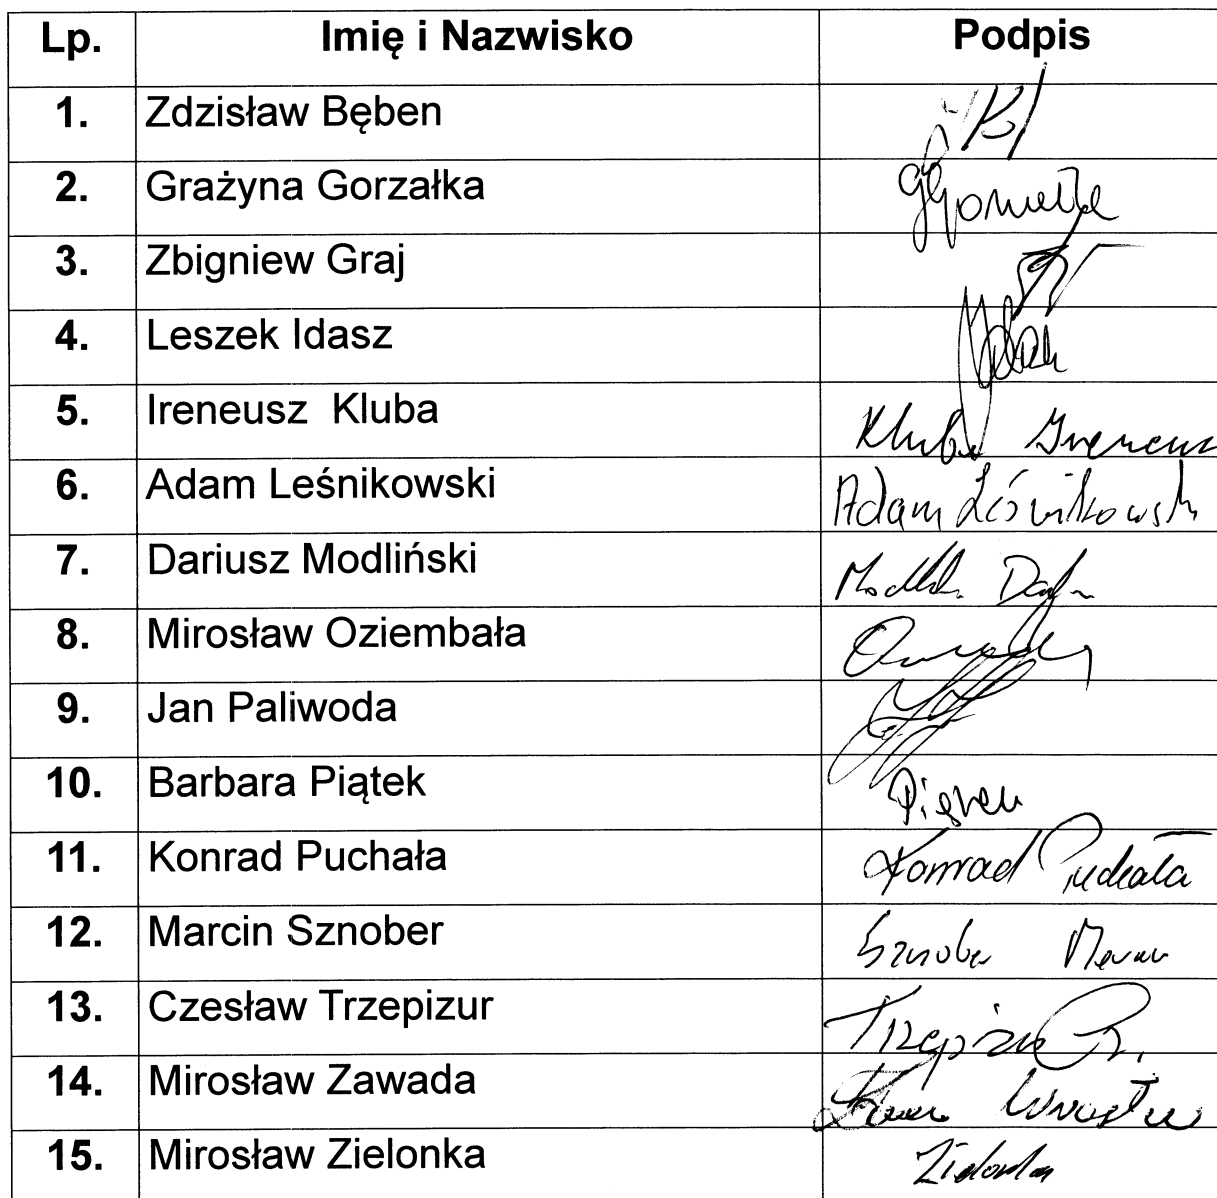 Lp. Imię i Nazwisko Podpis
1. Zdzisław Bęben
2. Grażyna Gorzałka
3. Zbigniew Graj
4. Leszek Idasz
5. Ireneusz Kluba Kluba Ireneusz
6. Adam Leśnikowski Adam Leśnikowski
7. Dariusz Modliński
8. Mirosław Oziembała
9. Jan Paliwoda
10. Barbara Piątek
11. Konrad Puchała Konrad Puchała
12. Marcin Sznober Sznober
13. Czesław Trzepizur Trzepizur Cz.
14. Mirosław Zawada
15. Mirosław Zielonka Zielonka